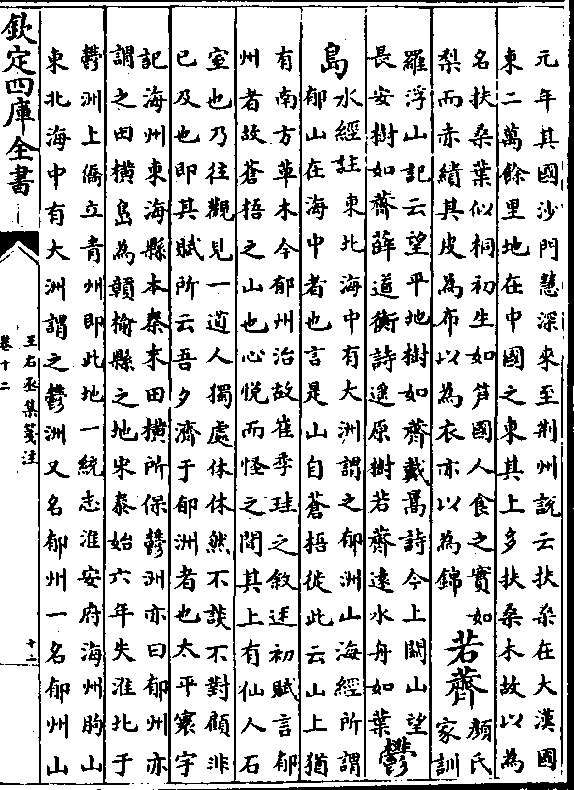 元年其國沙門慧深來至荆州說云扶桑在大漢國
東二萬餘里地在中國之東其上多扶桑木故以為
名扶桑葉似桐初生如笋國人食之實如
梨而赤績其皮為布以為衣亦以為錦
若薺
顔氏
家訓
羅浮山記云望平地樹如薺戴暠詩今上關山望
長安樹如薺薛道衡詩遥原樹若薺逺水舟如葉
鬱
島
水經註東北海中有大洲謂之郁洲山海經所謂
郁山在海中者也言是山自蒼梧徙此云山上猶
有南方草木今郁州治故崔季珪之敘述初賦言郁
州者故蒼梧之山也心悦而怪之聞其上有仙人石
室也乃往觀見一道人獨處休休然不談不對顧非
已及也即其賦所云吾夕濟于郁洲者也太平寰宇
記海州東海縣本秦末田横所保鬱洲亦曰郁州亦
謂之田横島為贛榆縣之地宋泰始六年失淮北于
鬱洲上僑立青州即此地一統志淮安府海州朐山
東北海中有大洲謂之鬱洲又名郁州一名郁州山
欽定四庫全書
王右丞集箋注
卷十二
十二